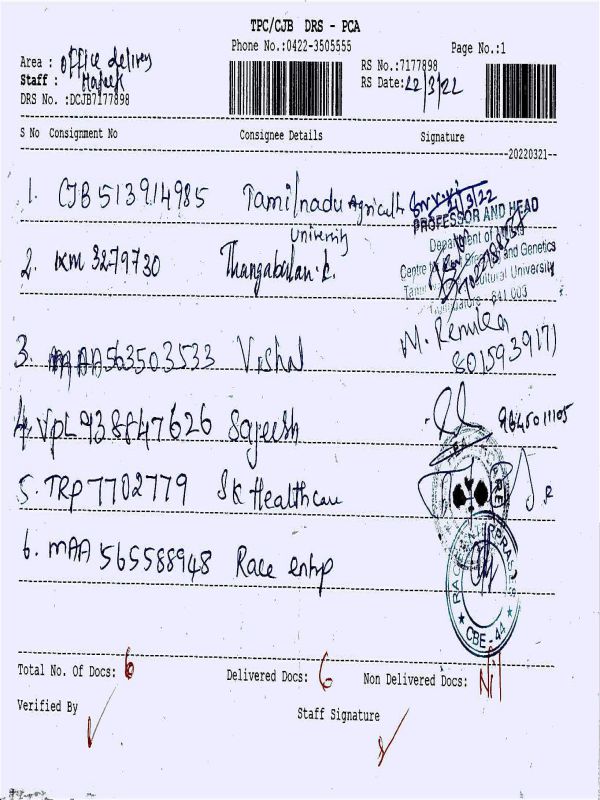 TPC/CJB DRS - PCA
Phone No.:0422-3505555 Page No.:1
Area : office delivery
Staff :
DRS No. :DCJB7177898
RS No.:7177898
RS Date: 22/3/22
S No Consignment No Consignee Details Signature
20220321
1. CJB 513914985 Tamilnadu Agricult
University
21/3/22
PROFESSOR AND HEAD
Department of
Centre and Genetics
cultural University
641 003
2. 3279730 Thangabalan.c.
3. MAA563503533 Vishal M. Renuka
8015939171
4. VPL 938847626 Sajeesh 9645011105
5. TRP 7702779 SK Healthcare
6. MAA 565588948 Race entp
CBE - 44
Total No. Of Docs: 6 Delivered Docs: 6 Non Delivered Docs: Nil
Verified By Staff Signature